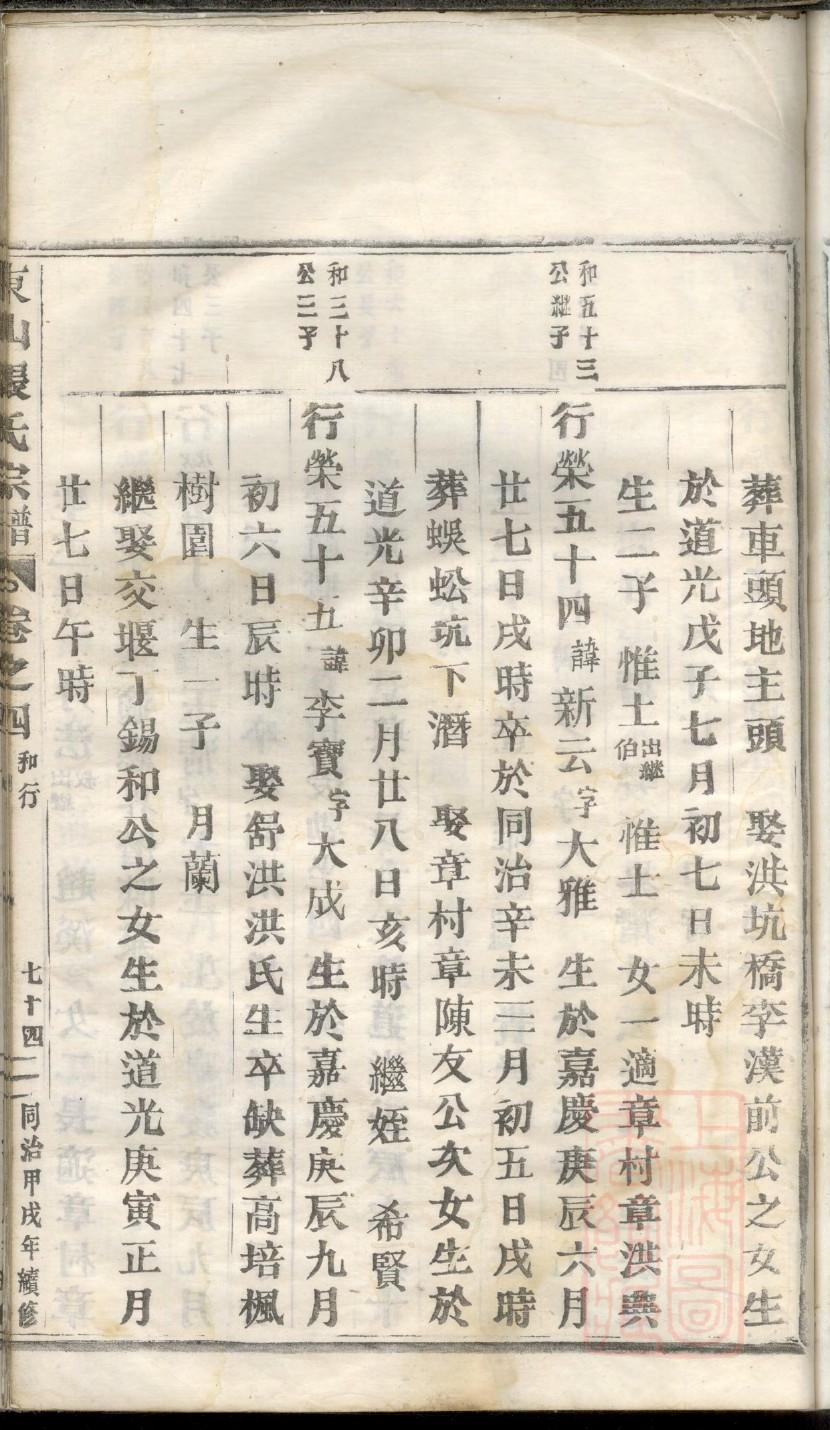 葬車頭地主頭　娶洪坑橋李漢前公之女生
於道光戊子七月初七日未時
生二子　惟土出繼伯　惟士　女一適章村章洪興
和五十三公繼子
行榮五十四諱新云字大雅　生於嘉慶庚辰六月
廿七日戌時卒於同治辛未三月初五日戌時
葬蜈蚣坑下潛　娶章村章陳友公次女生於
道光辛卯二月廿八日亥時　繼姪　希賢
和三十八公二子
行榮五十五諱李寶字大成　生於嘉慶庚辰九月
初六日辰時　娶舒洪洪氏生卒缺葬高培楓
樹園　生一子　月蘭
繼娶交堰丁錫和公之女生於道光庚寅正月
廿七日午時
東山張氏宗譜　卷之四　和行　七十四　同治甲戌年續修
上海圖書館藏